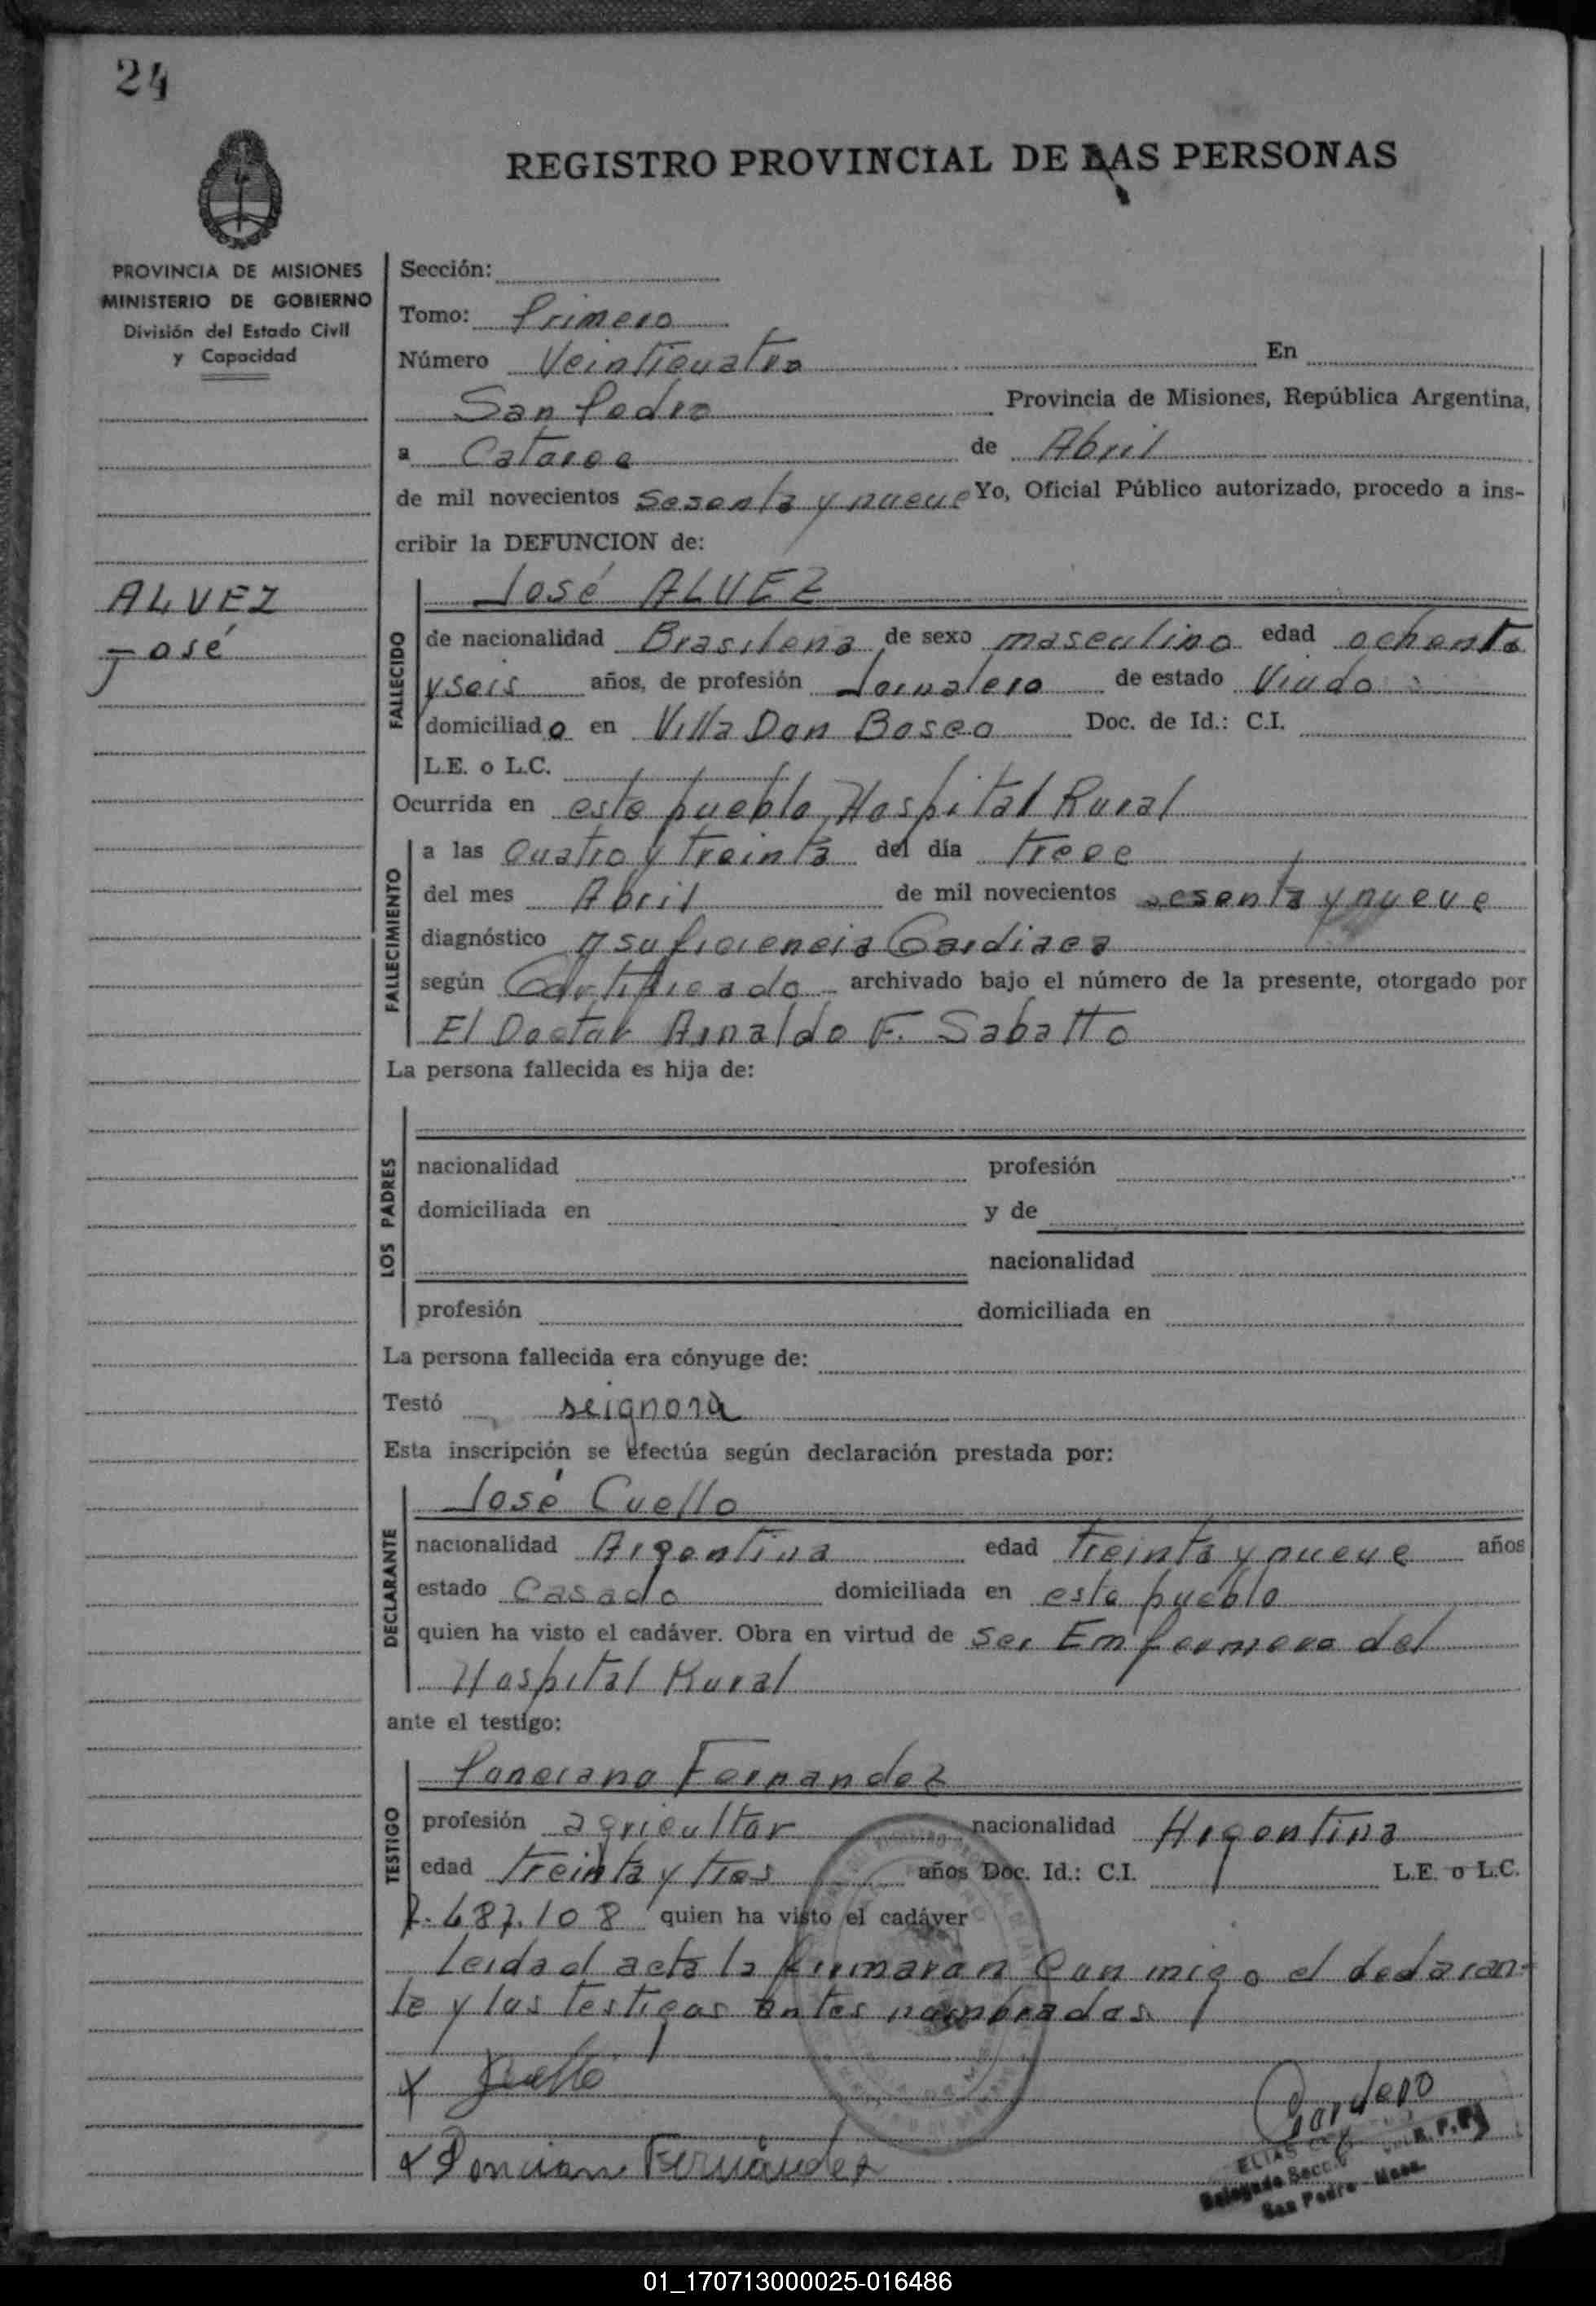 24
REGISTRO PROVINCIAL DE LAS PERSONAS
PROVINCIA DE MISIONES
MINISTERIO DE GOBIERNO
División del Estado Civil
y Capacidad
ALVEZ
José
Sección:
Tomo: Primero
Número Veintiquatro En
San Pedro Provincia de Misiones, República Argentina,
a Catorce de Abril
de mil novecientos Sesenta y nueve Yo, Oficial Público autorizado, procedo a ins-
cribir la DEFUNCION de:
FALLECIDO
José ALVEZ
de nacionalidad Brasilena de sexo masculino edad ochenta
y seis años, de profesión Jornalero de estado Viudo
domiciliado en Villa Don Bosco Doc. de Id.: C.I.
L.E. o L.C.
Ocurrida en este pueblo, Hospital Rural
FALLECIMIENTO
a las Cuatro y treinta del día trece
del mes Abril de mil novecientos sesenta y nueve
diagnóstico Insuficiencia Cardiaca
según Certificado archivado bajo el número de la presente, otorgado por
El Doctor Arnaldo F. Sabatto
La persona fallecida es hija de:
LOS PADRES
nacionalidad profesión
domiciliada en y de
nacionalidad
profesión domiciliada en
La persona fallecida era cónyuge de:
Testó seignora
Esta inscripción se efectúa según declaración prestada por:
DECLARANTE
José Cuello
nacionalidad Argentina edad treinta y nueve años
estado Casado domiciliada en este pueblo
quien ha visto el cadáver. Obra en virtud de ser Enfermero del
Hospital Rural
ante el testigo:
TESTIGO
Ponciano Fernandez
profesión agricultor nacionalidad Argentina
edad treinta y tres años Doc. Id.: C.I. L.E. o L.C.
7.487.108 quien ha visto el cadáver
Leida el acta la firmaran Conmigo el declaran-
te y los testigos antes nombrados
x Cuello
Cordero
x Poncian Fernández
ELIAS
Delegado Secc.
San Pedro - Mnes.
01_170713000025-016486